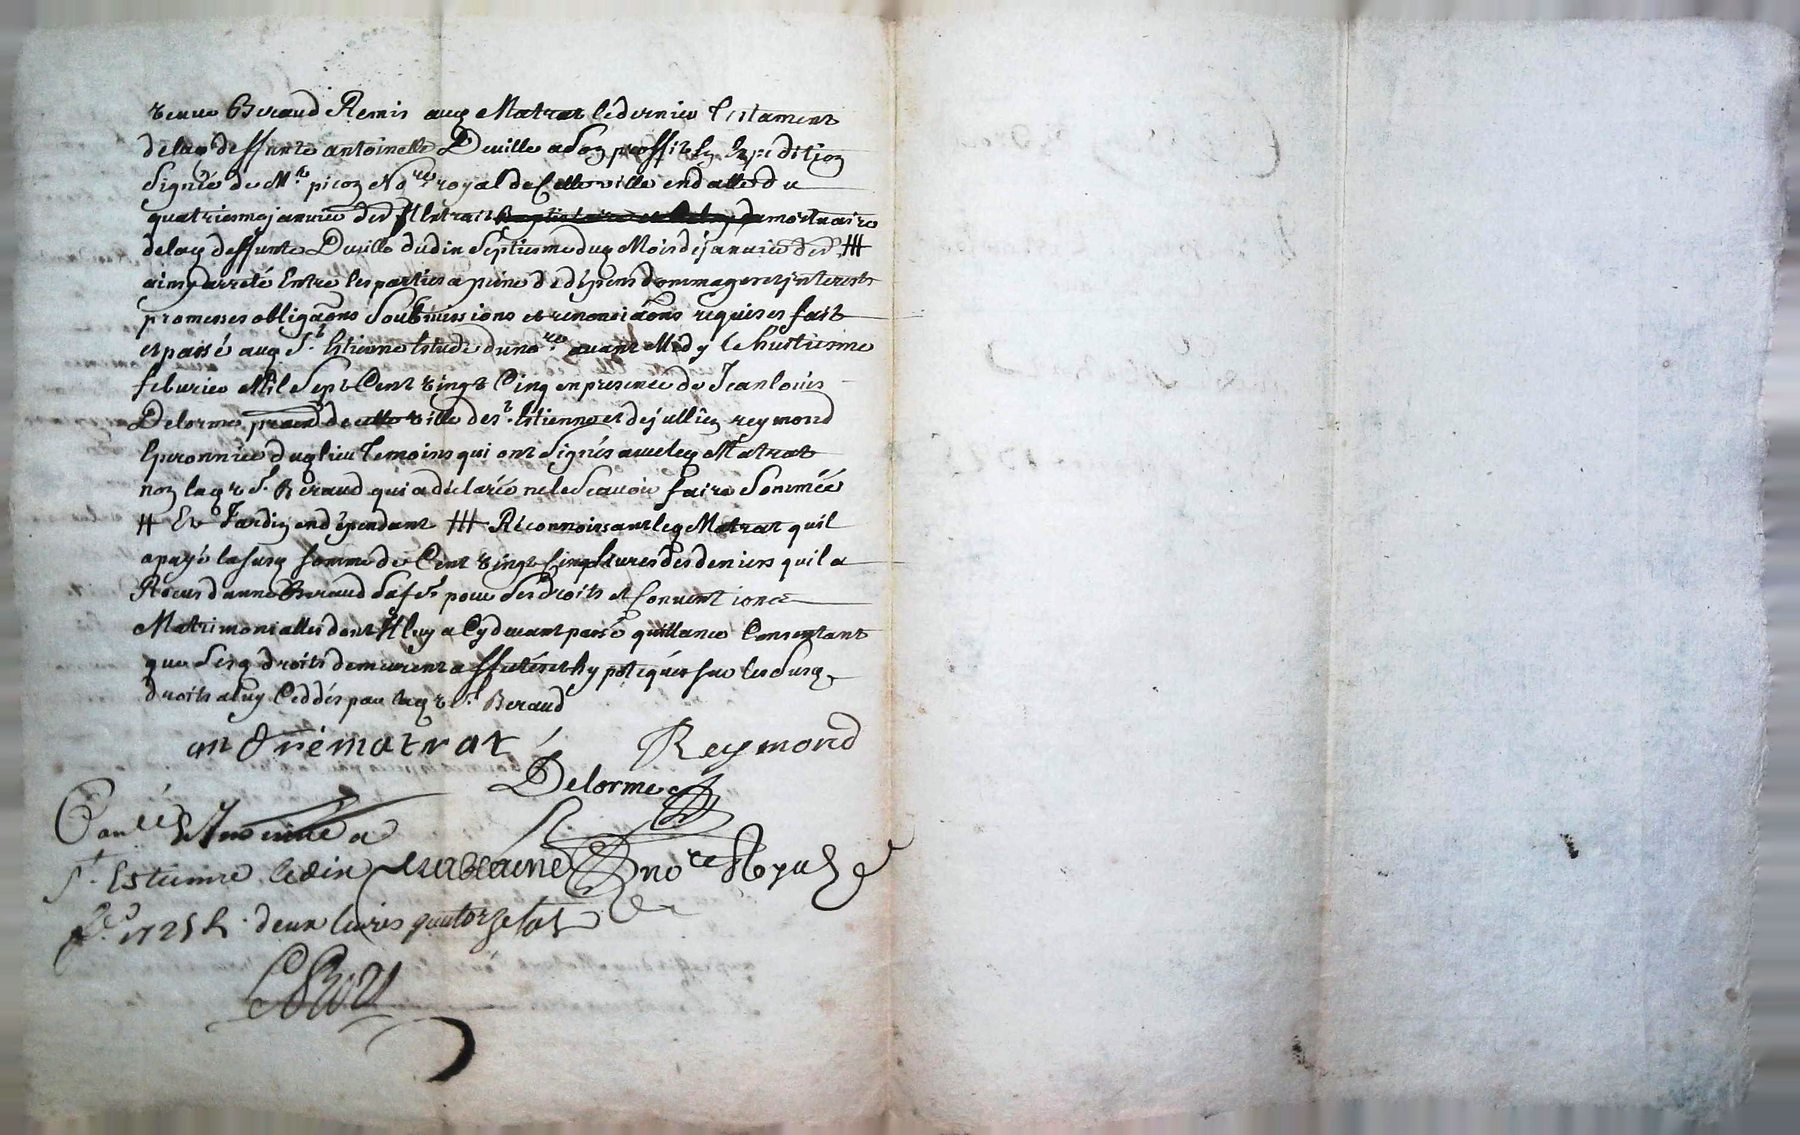 veuve Beraud Remis aud Matrat le dernier Testament
de lad deffunte antoinette Deville a son proffit Expedition
Signée de Mr picon Nore royal de Cette ville en datte du
quatriesme janvier der Extrait mortuaire
de lad deffunte Deville du dix Septiesme dud Mois de janvier der ##
ainsy arreté Entre les parties a peine de dépens dommages et jnterests
promesses obligaons Soubmissions et renonciaons requises fait
et passé aud St Estienne Estude du nore avant Midy le huitiesme
feburier Mil Sept Cent vingt Cinq en presence de Jean louis
Delorme de St Estienne et de jullien reymond
Eperonnier dud lieu Temoins qui ont Signés avec led Matrat
non lad ve Beraud qui a déclarée ne le Scavoir faire Sommée
# Et Jardin en dépendant ## Reconnoissant led Matrat quil
a payé la susd somme de Cent vingt Cinq livres des deniers quil a
Receus danne Beraud Sa fe pour Ses droits et Convent ions
Matrimonialles dont Il luy a Cy devant passé quittance Consentant
que Sesd droits demeurent affectés et hypotequés sur les Susd
droits a luy Ceddés par lad ve Beraud
andré matrat Reymond
Delorme
a
St Estienne le dix nore Royal
1725 R. deux livres quatorze sols